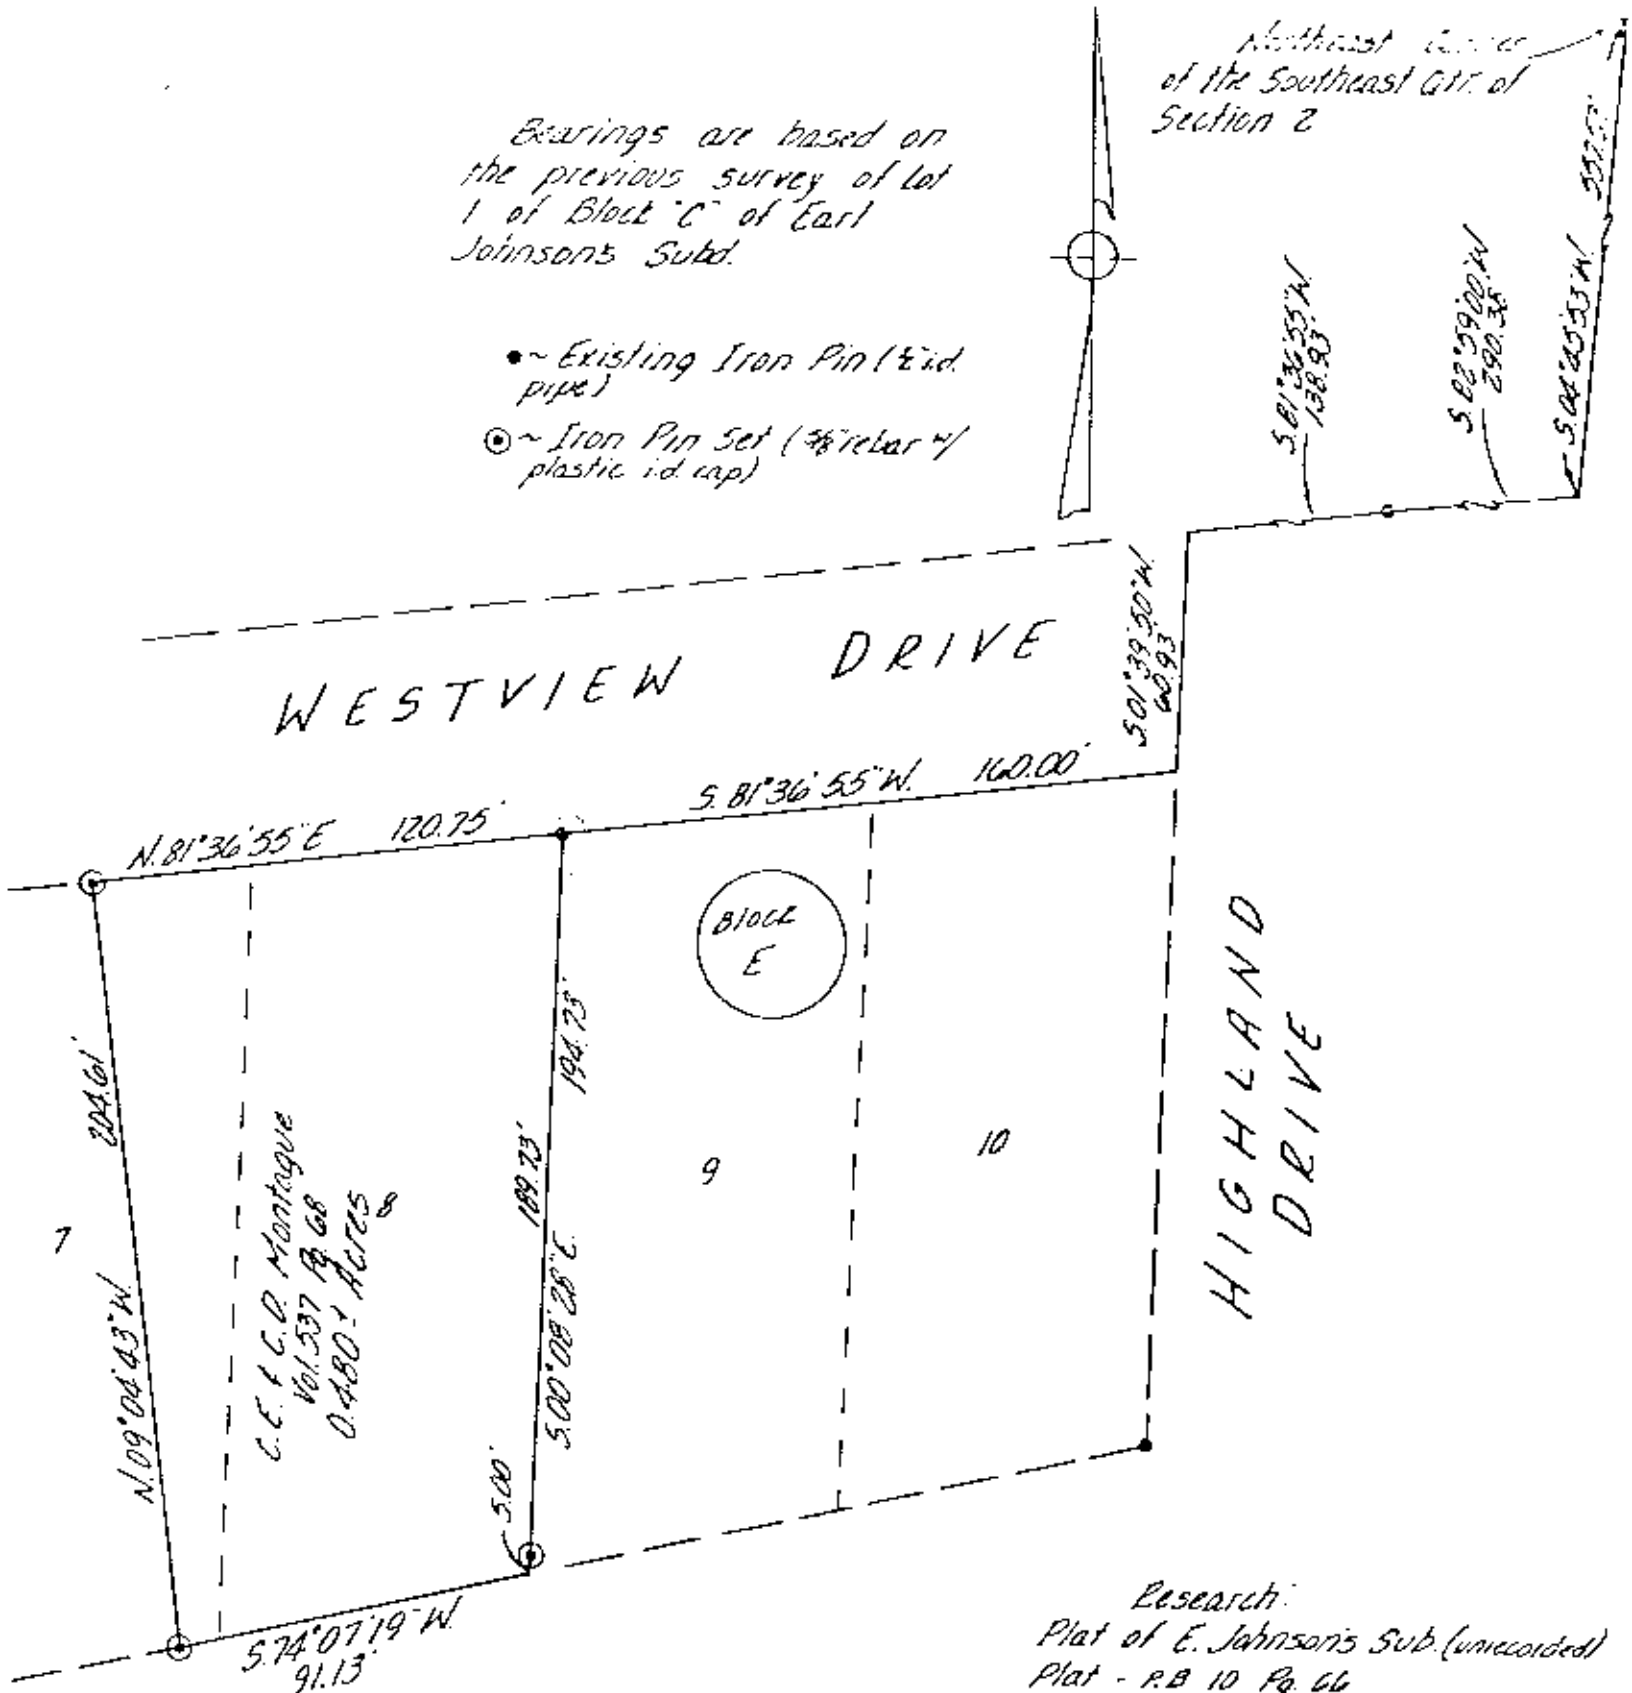 Northeast Corner
of the Southeast Qtr. of
Section 2
Bearings are based on
the previous survey of Lot
1 of Block "C" of Earl
Johnson's Subd.
~ Existing Iron Pin (½" i.d.
pipe)
~ Iron Pin Set (⅝" rebar w/
plastic i.d. cap)
S.81°36'55"W.
138.93'
S.82°59'00"W
290.38'
S.04°45'53"W.
S.01°39'50"W.
60.93'
WESTVIEW DRIVE
N.81°36'55"E 120.75'
S.81°36'55"W. 160.00'
BLOCK
E
204.61'
N.09°04'43"W.
7
C.E. & C.D. Montague
Vol. 537 Pg. 68
0.480± Acres
8
194.73'
189.73'
S.00°08'28"E.
5.00'
9
10
HIGHLAND
DRIVE
S.74°07'19"W.
91.13'
Research:
Plat of E. Johnson's Sub. (unrecorded)
Plat - P.B 10 Pg. 66